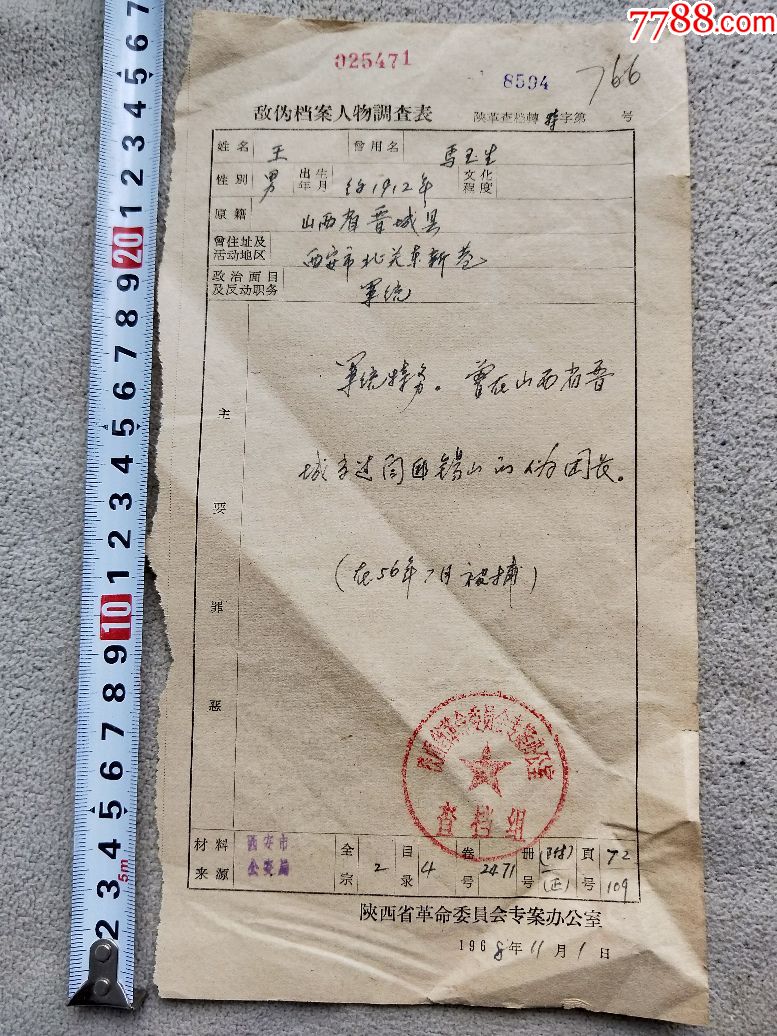 7788.com
025471
8504
766
敌伪档案人物調查表
陕革查档轉 特字第 号
姓名 王 曾用名 馬玉生
性别 男 出生年月 约1912年 文化程度
原籍 山西省晋城县
曾住址及活动地区 西安市北关革新巷
政治面目及反动职务 軍统
主要罪惡
軍统特务。曾在山西省晋
城当过阎匪锡山的伪团长。
(在56年7月被捕)
陕西省革命委員会专案办公室
查档组
材料来源 西安市公安局 全宗 2 目录 4 卷号 2471 册 (附) (正) 頁号 72 109
陕西省革命委員会专案办公室
1968年11月1日
20
10
5m